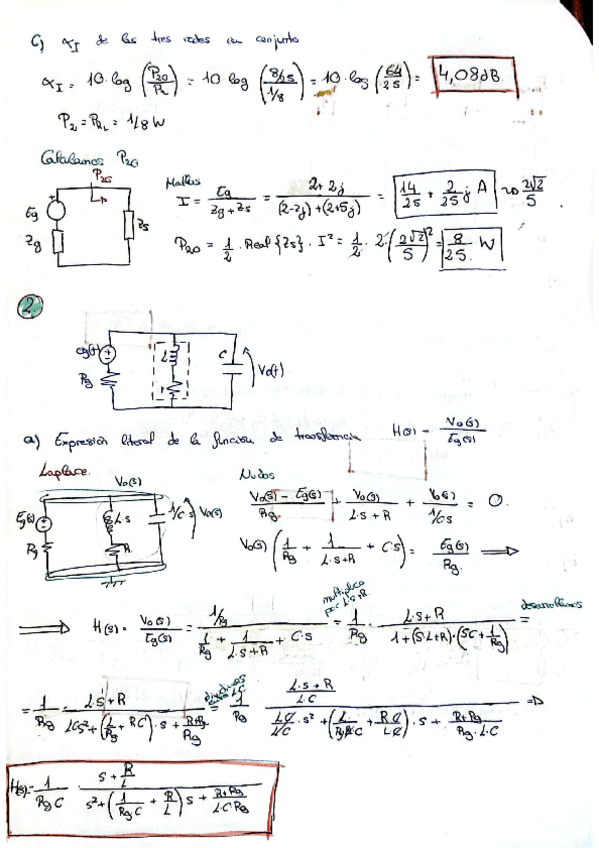 c) αI de las tres redes en conjunto
αI = 10·log (P20/PL) = 10·log ((8/25)/(1/8)) = 10·log (64/25) = 4,08 dB
P2 = PRL = 1/8 W
Calculamos P20
P20
Eg
Zg
Zs
Mallas
I = Eg/(Zg+Zs) = (2+2j)/((2-2j)+(2+5j)) = 14/25 + 2/25 j A → 2√2/5
P20 = 1/2 · Real {Zs} · I² = 1/2 · 2·(2√2/5)² = 8/25 W
2.
eg(t)
Rg
L
r
C
Vo(t)
a) Expresión literal de la función de transferencia H(s) = Vo(s)/Eg(s)
Laplace.
Vo(s)
Eg(s)
Rg
L·s
R
1/Cs
Vo(s)
Nudos
(Vo(s) - Eg(s))/Rg + Vo(s)/(L·s+R) + Vo(s)/(1/Cs) = 0.
Vo(s) (1/Rg + 1/(L·s+R) + C·s) = Eg(s)/Rg ⟹
multiplico por L·s+R
desarrollamos
⟹ H(s) = Vo(s)/Eg(s) = (1/Rg)/(1/Rg + 1/(L·s+R) + C·s) = 1/Rg · (L·s+R)/(1+(S·L+R)·(SC+1/Rg)) =
= 1/Rg · (L·s+R)/(LCs²+(L/Rg + RC)·s + (R+Rg)/Rg) = 1/Rg · ((L·s+R)/(L·C))/((LC/LC)·s² + (L/(RgLC) + RC/(LC))·s + (R+Rg)/(Rg·L·C)) ⇒
H(s) = 1/(Rg C) · (s + R/L)/(s²+(1/(Rg C) + R/L)s + (R+Rg)/(L·C·Rg))